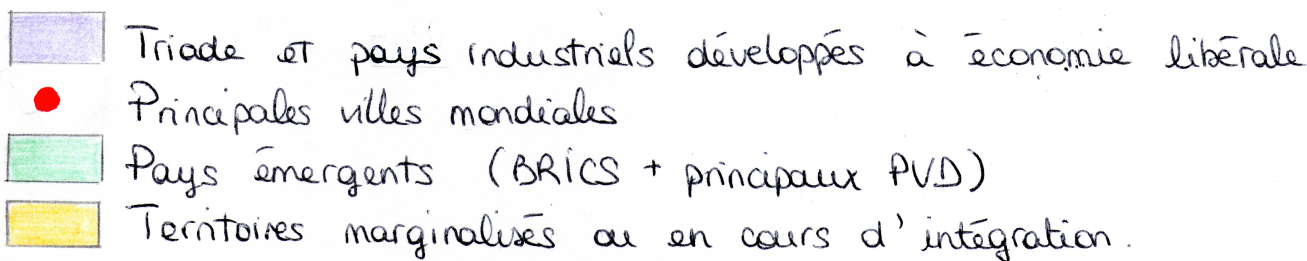 Triade et pays industriels développés à économie libérale
Principales villes mondiales
Pays émergents (BRICS + principaux PVD)
Territoires marginalisés ou en cours d'intégration.